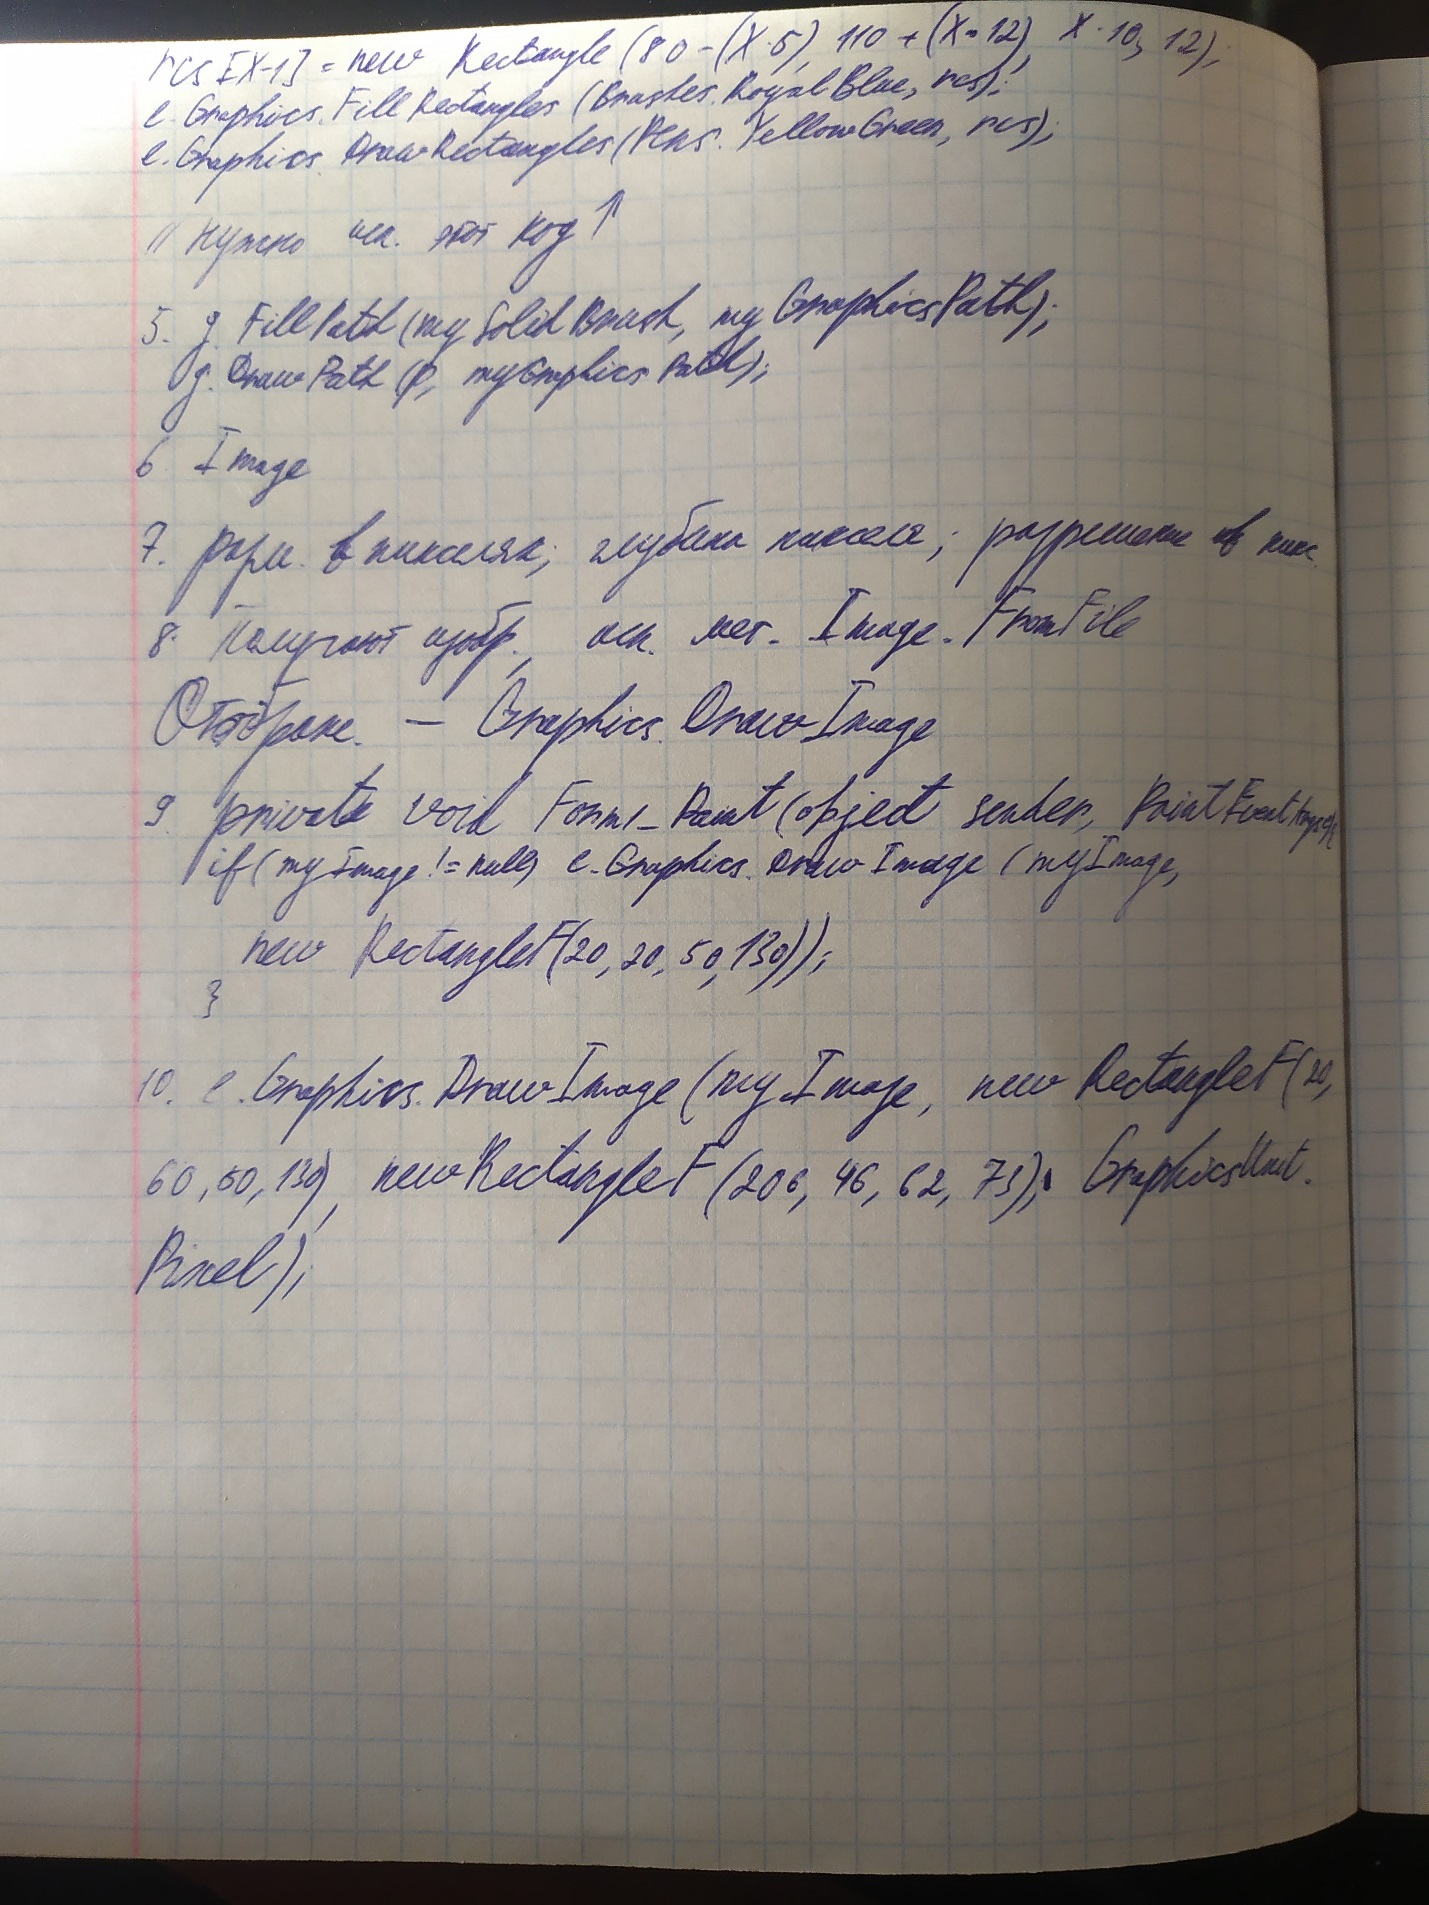 rcs [X-1] = new Rectangle (80 - (X·5), 110 + (X·12), X·10, 12);
e.Graphics.FillRectangles (Brushes.RoyalBlue, rcs);
e.Graphics.DrawRectangles (Pens.YellowGreen, rcs);
// нужно исп. этот код ↑
5. g.FillPath (mySolidBrush, myGraphicsPath);
g.DrawPath (p, myGraphicsPath);
6 Image
7. разм. в пикселях; глубина пикселя; разрешение в пикс.
8. Получают изобр., исп. мет. Image.FromFile
Отображ. — Graphics.DrawImage
9. private void Form1_Paint (object sender, PaintEventArgs e){
if (myImage != null) e.Graphics.DrawImage (myImage,
new RectangleF(20, 20, 50, 130));
}
10. e.Graphics.DrawImage (myImage, new RectangleF(20,
60, 50, 130), new RectangleF (206, 46, 62, 73), GraphicsUnit.
Pixel);